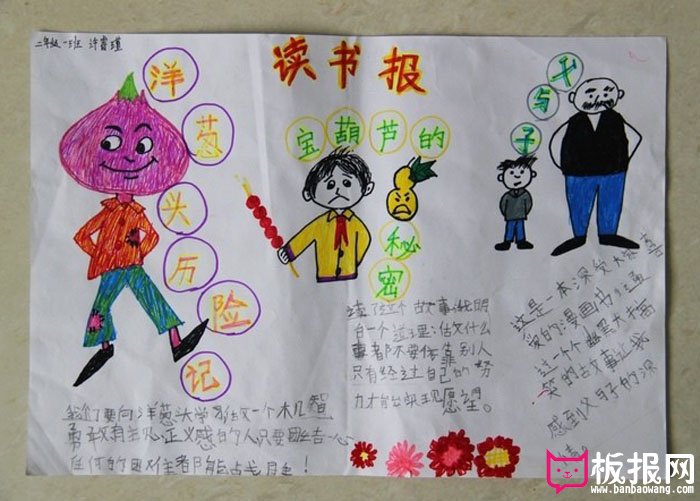 二年级一班 许睿瑾
读书报
洋葱头历险记
宝葫芦的秘密
父与子
我们要向洋葱头学习做一个机智
勇敢有主见正义感的人只要团结一心
任何的困难者都能占戈月生！
读了这个故事说明
白一个道理：做什么
事者都不要依靠别人
只有经过自己的努
力才能实现愿望。
这是一本深受大家喜
爱的漫画书
这一个个幽默大
笑的故事让我
感到父子的深
板报网
www.banbaowang.com